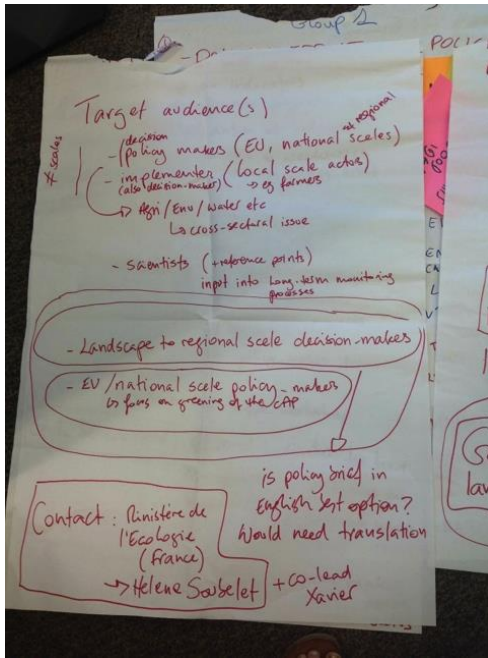 Group 1
POLI
Target audience(s)
≠ scales
decision
- policy makers (EU, national scales)
+ regional
- implementer (local scale actors)
(also decision-maker) → eg farmers
→ Agri/Env/water etc
↳ cross-sectural issue
- Scientists (+reference points)
input into long-term monitoring
processes
- Landscape to regional scale decision-makes
- EU/national scale policy-makers
↳ focus on greening of the CAP
is policy brief in
English best option?
Would need translation
Contact: Ministère de
l'Ecologie
(France)
→ Hélène Soubelet
+ co-lead
Xavier